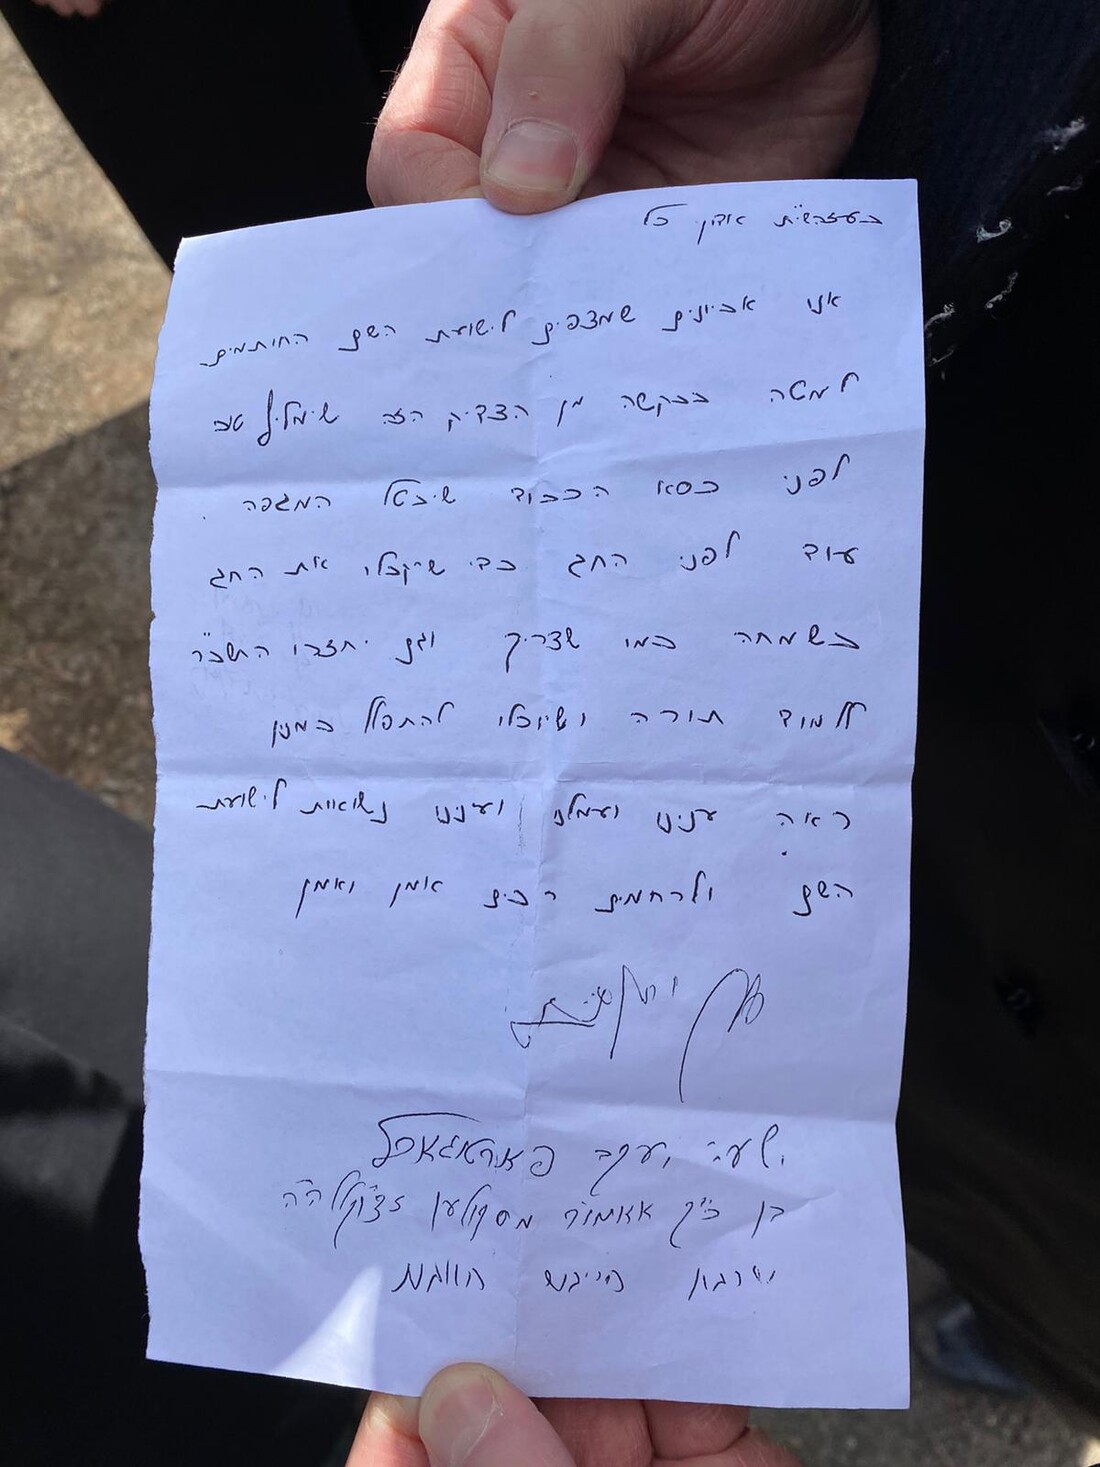 בעזהשי״ת אדון כל
אנו אביונים שמצפים לישועת השם החותמים
למטה בבקשה מן הצדיק הזה שימליץ טוב
לפני כסא הכבוד שיבטל המגפה
עוד לפני החג כדי שיקבלו את החג
בשמחה כמו שצריך וגם יחזרו התשב״ר
ללמוד תורה ושיוכלו להתפלל במנין
ראה ענינו ועמלנו ועינינו נשואות לישועת
השם ולרחמים רבים אמן ואמן
ישעי׳ יעקב פארטוגאל
בן כ״ק אאמו״ר מסקולען זצוקללה״ה